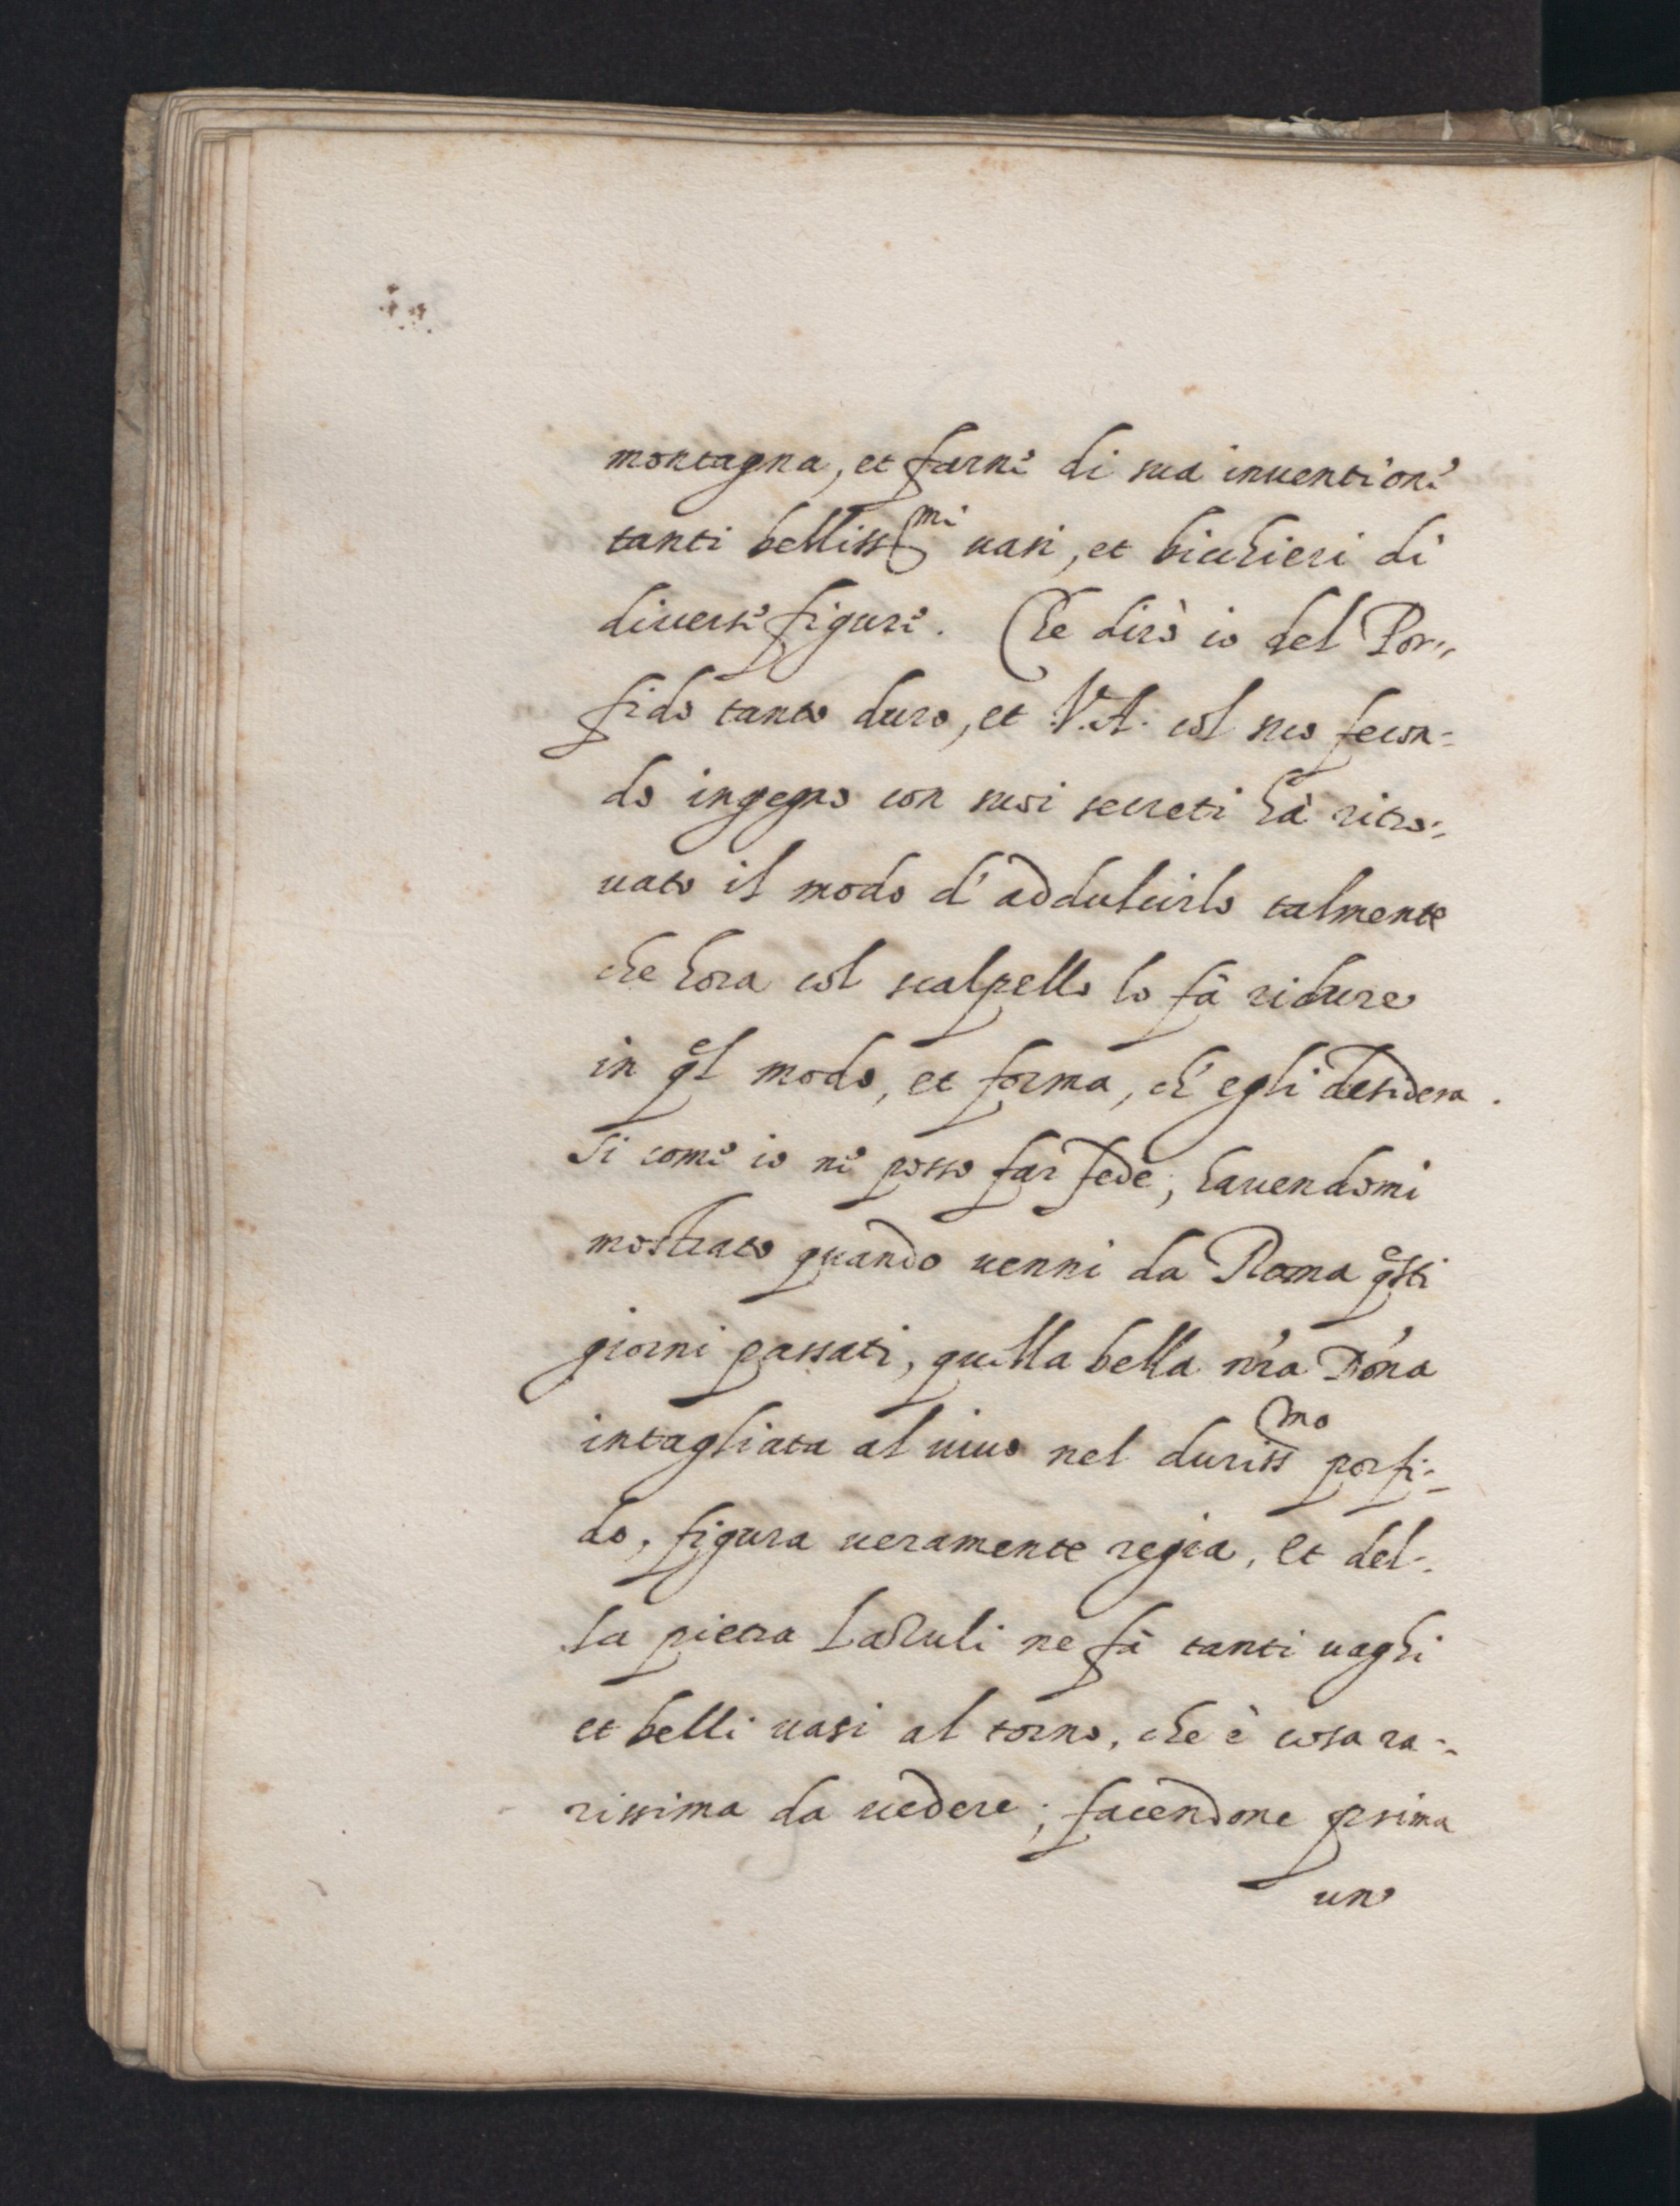 montagna, et farne di sua inuentione
tanti belliss.mi uasi, et bicchieri di
diuerse figure. Che dirò io del Por„
fido tanto duro, et V.A. col suo fecon=
do ingegno con suoi secreti hà ritro=
uato il modo d'addulcirlo talmente
che hora col scalpello lo fà ridure
in ql modo, et forma, ch'egli desidera.
Si come io ne posso far fede, hauendomi
mostrato quando uenni da Roma qsti
giorni passati, quella bella nra Dona
intagliata al uiuo nel duriss.mo porfi=
do, figura ueramente regia, et del=
la pietra Lasuli ne fà tanti uaghi
et belli uasi al torno, che è cosa ra=
rissima da uedere; facendone prima
uno